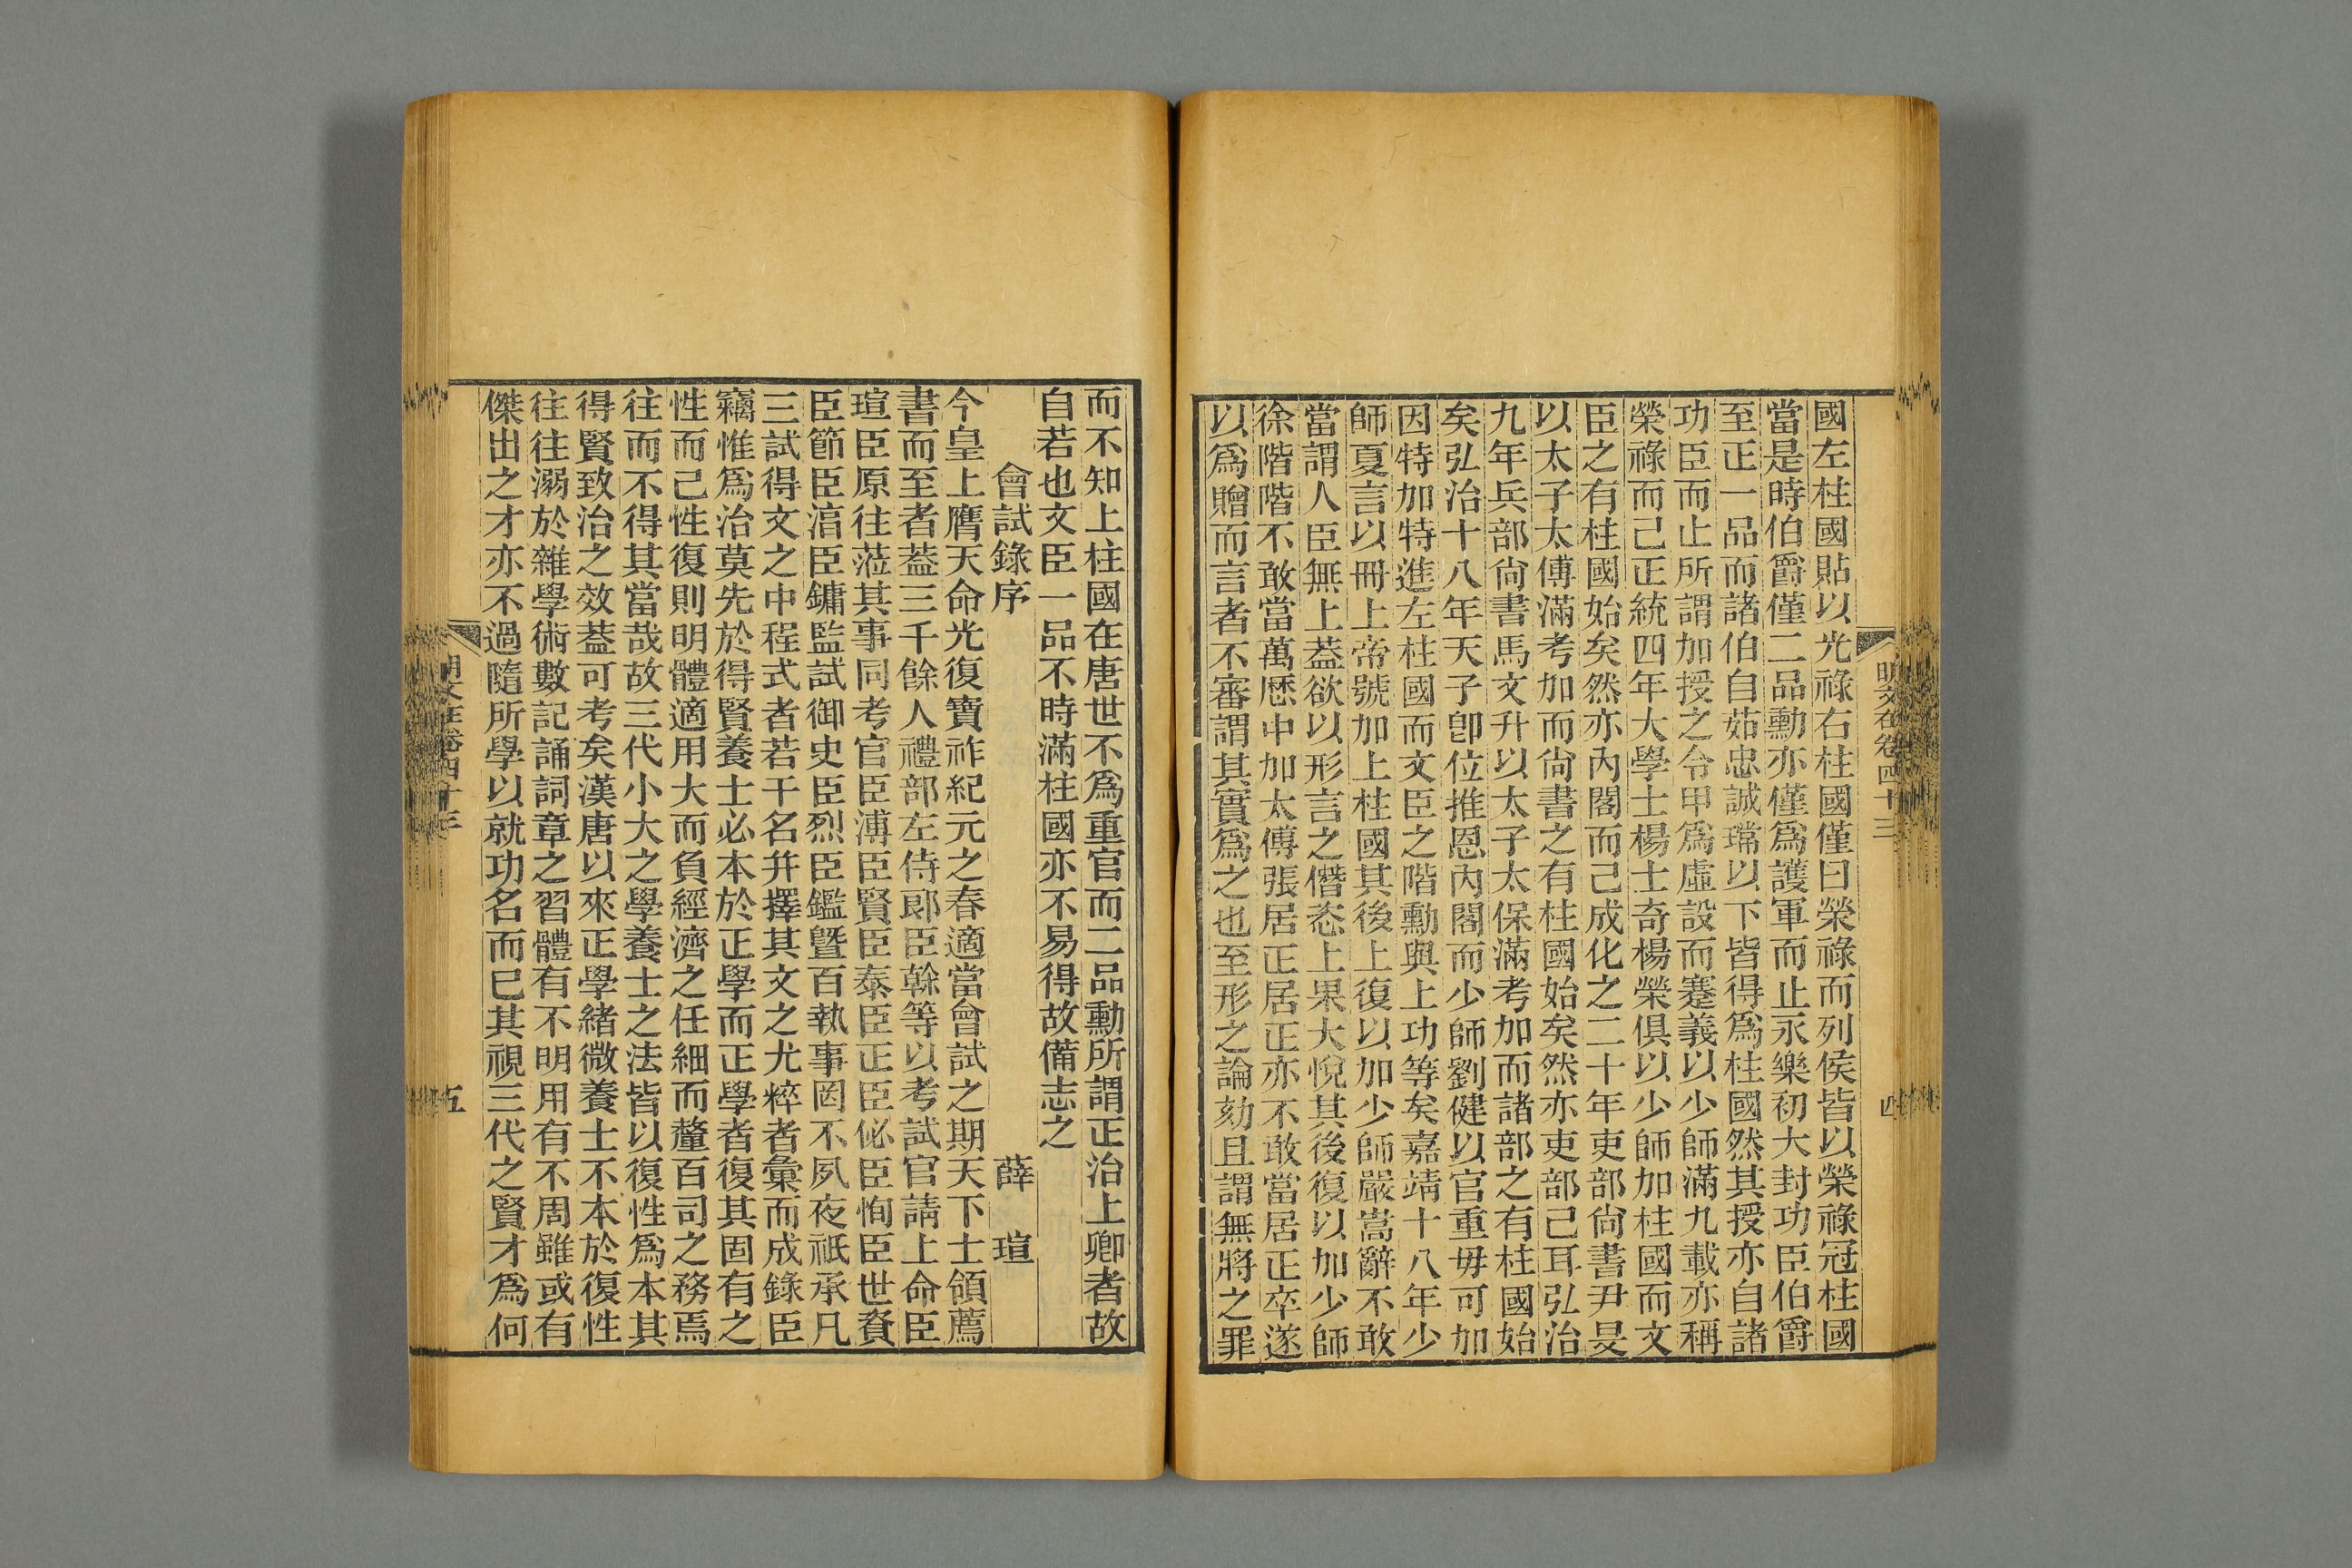 明文在卷四十三
四
國左柱國貼以光祿右柱國僅曰榮祿而列侯皆以榮祿冠柱國
當是時伯爵僅二品勳亦僅為護軍而止永樂初大封功臣伯爵
至正一品而諸伯自茹忠誠瑺以下皆得為柱國然其授亦自諸
功臣而止所謂加授之令甲為虛設而蹇義以少師滿九載亦稱
榮祿而己正統四年大學士楊士奇楊榮俱以少師加柱國而文
臣之有柱國始矣然亦內閣而己成化之二十年吏部尙書尹旻
以太子太傅滿考加而尙書之有柱國始矣然亦吏部己耳弘治
九年兵部尙書馬文升以太子太保滿考加而諸部之有柱國始
矣弘治十八年天子卽位推恩內閣而少師劉健以官重毋可加
因特加特進左柱國而文臣之階勳與上功等矣嘉靖十八年少
師夏言以冊上帝號加上柱國其後上復以加少師嚴嵩辭不敢
當謂人臣無上葢欲以形言之僭恣上果大悅其後復以加少師
徐階階不敢當萬厯中加太傅張居正居正亦不敢當居正卒遂
以爲贈而言者不審謂其實爲之也至形之論劾且謂無將之罪
而不知上柱國在唐世不爲重官而二品勳所謂正治上卿者故
自若也文臣一品不時滿柱國亦不易得故備志之
會試錄序 薛瑄
今皇上膺天命光復寶祚紀元之春適當會試之期天下士領薦
書而至者葢三千餘人禮部左侍郞臣榦等以考試官請上命臣
瑄臣原往蒞其事同考官臣溥臣賢臣泰臣正臣佖臣恂臣世資
臣節臣涫臣鏞監試御史臣烈臣鑑曁百執事罔不夙夜祇承凡
三試得文之中程式者若干名幷擇其文之尤粹者彙而成錄臣
竊惟爲治莫先於得賢養士必本於正學而正學者復其固有之
性而己性復則明體適用大而負經濟之任細而釐百司之務焉
往而不得其當哉故三代小大之學養士之法皆以復性爲本其
得賢致治之效葢可考矣漢唐以來正學緒微養士不本於復性
往往溺於雜學術數記誦詞章之習體有不明用有不周雖或有
傑出之才亦不過隨所學以就功名而已其視三代之賢才爲何
明文在卷四十三
五